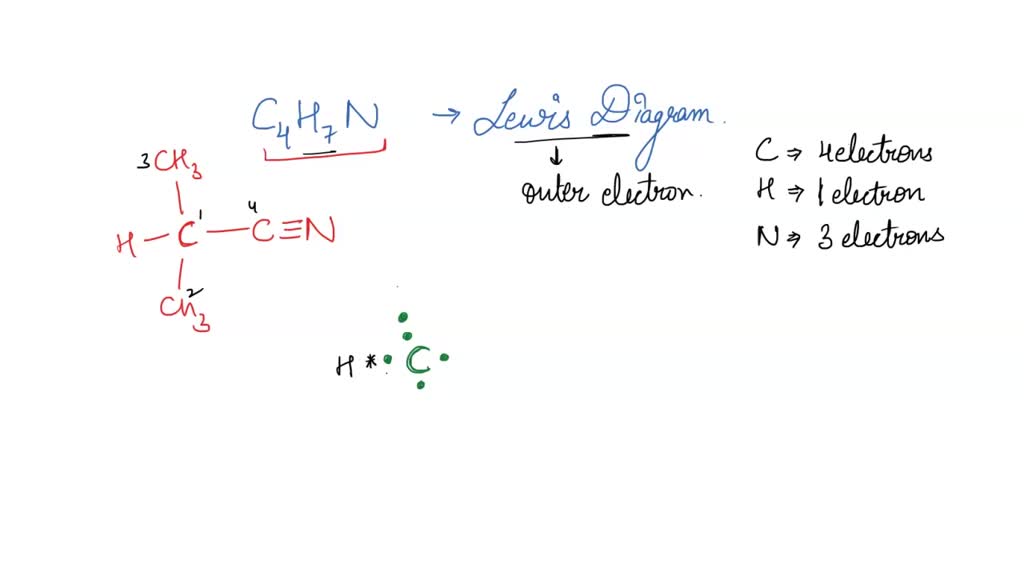 C4H7N → Lewis Diagram.
↓
outer electron.
C ⇒ 4 electrons
H ⇒ 1 electron
N ⇒ 3 electrons
3 CH3
H – C 1 – C 4 ≡ N
CH3 2
H * C